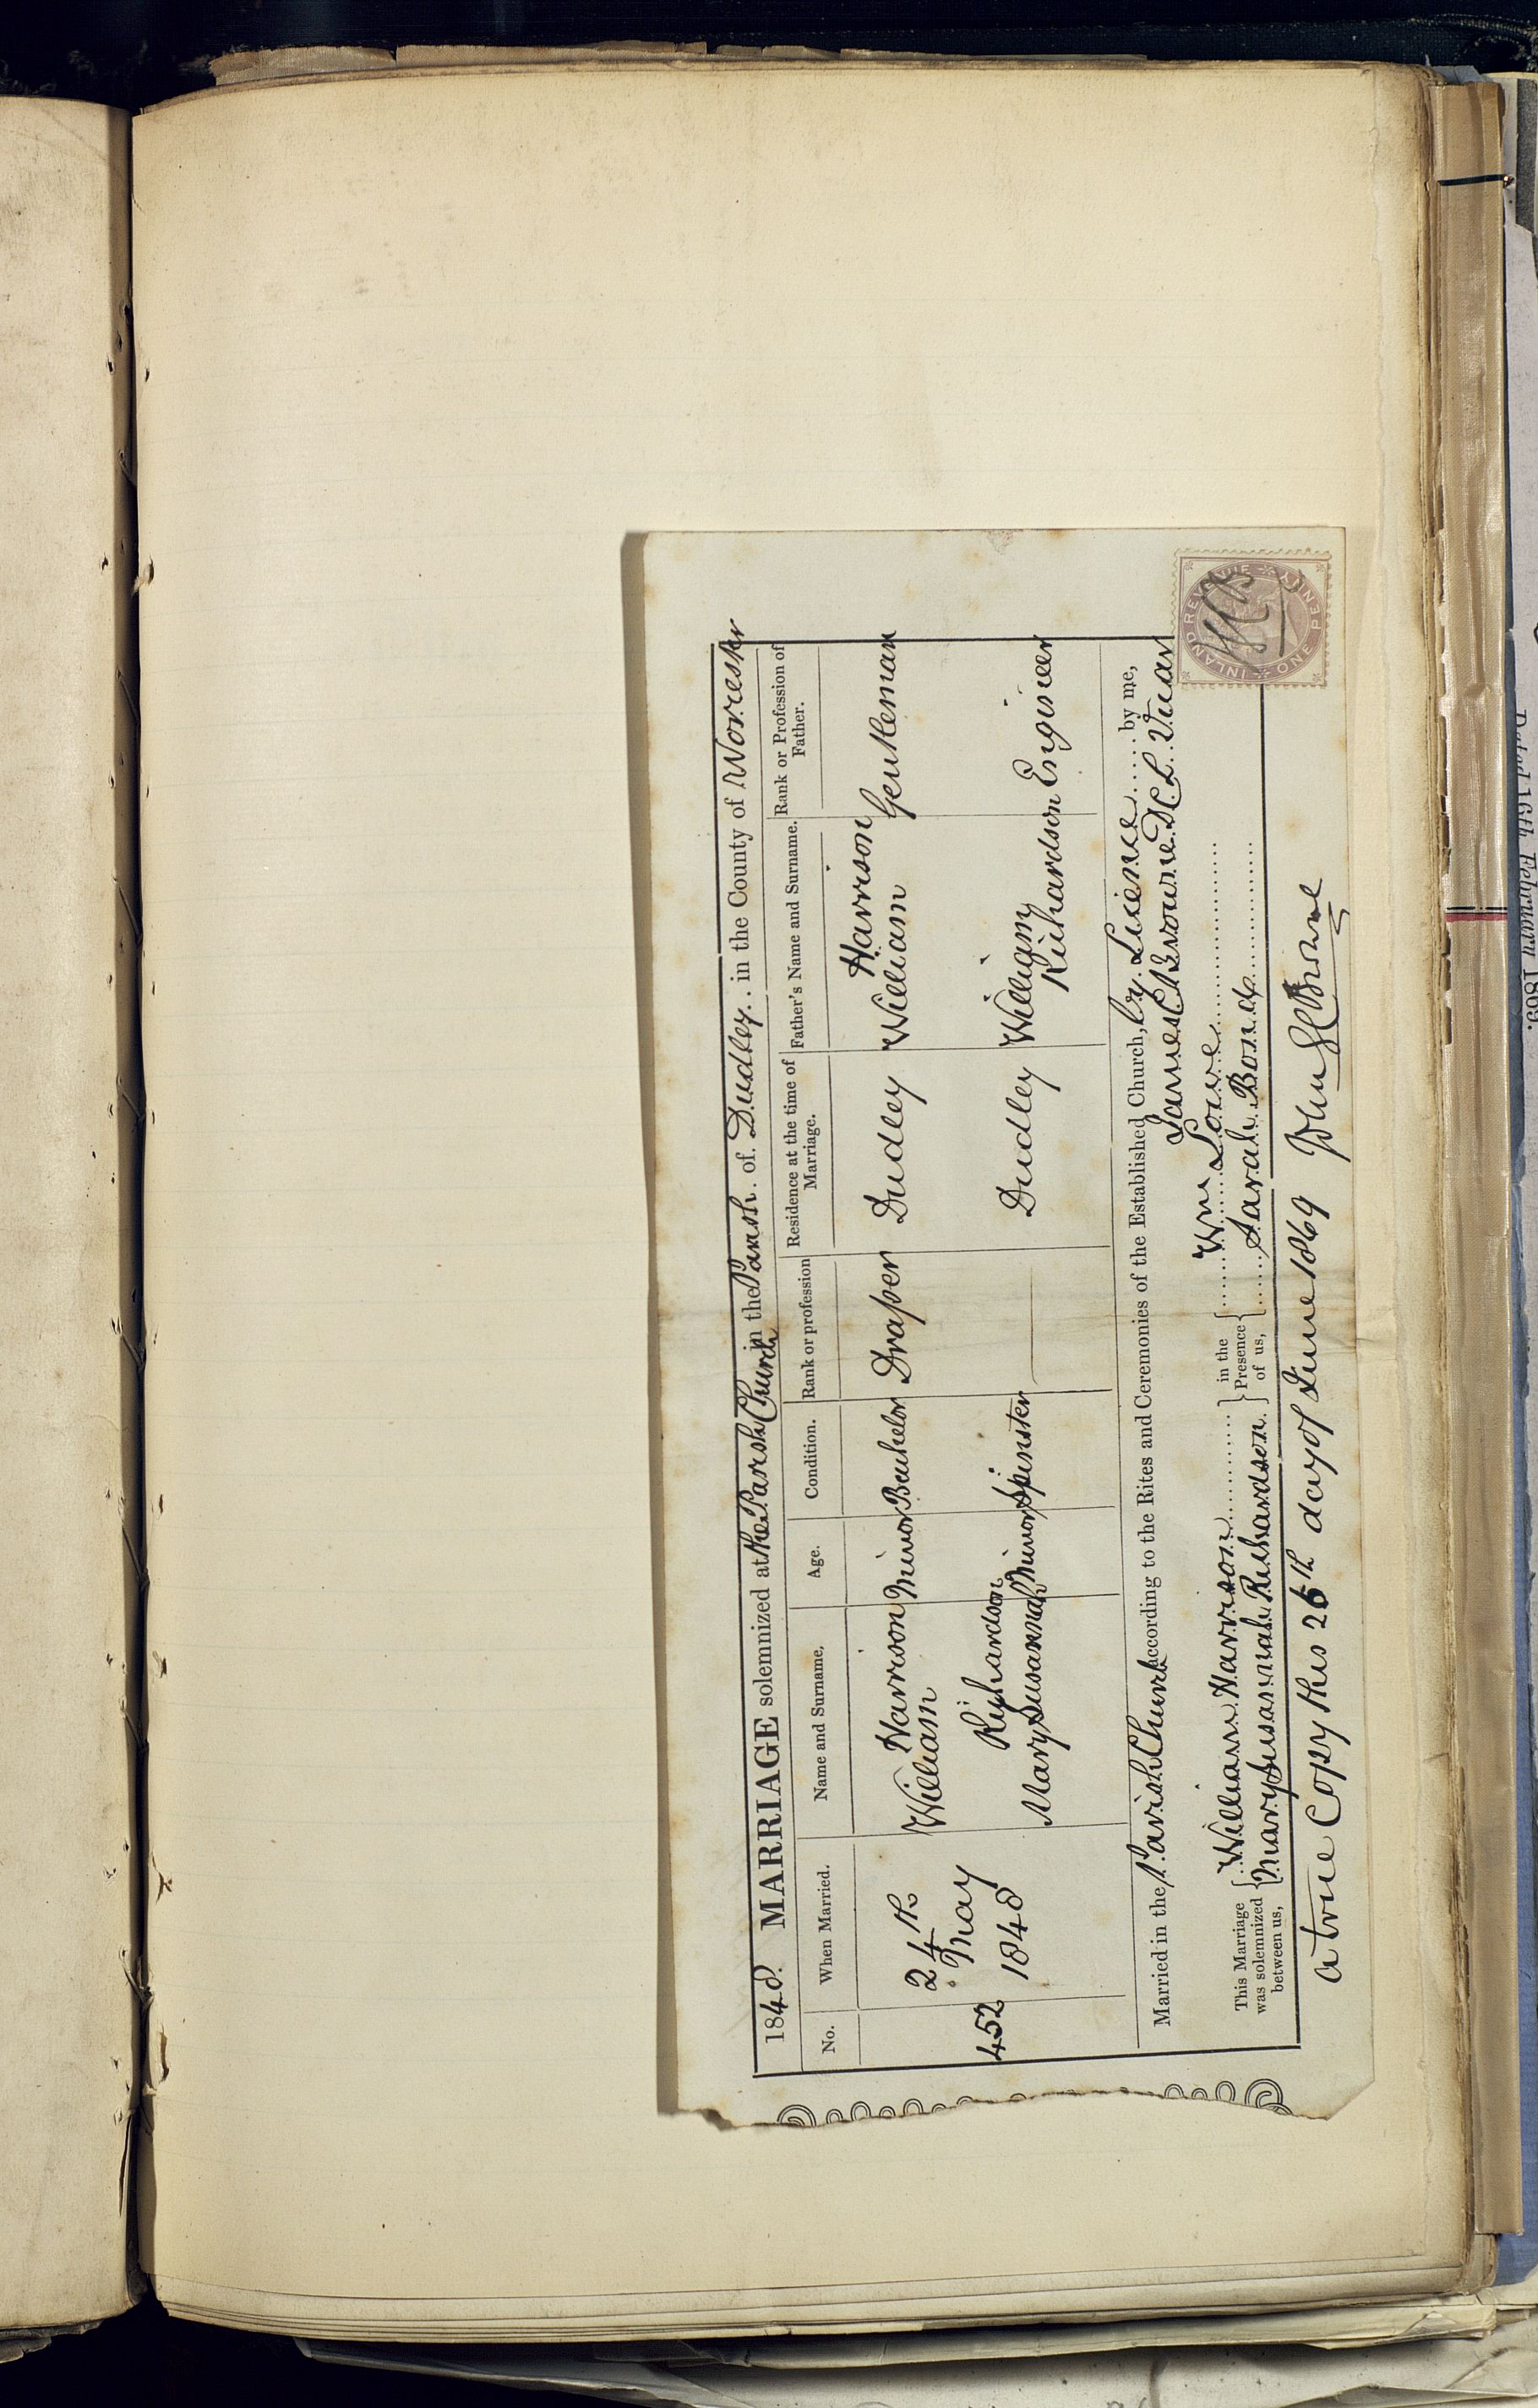 1848. MARRIAGE solemnized at the Parish Church in the Parish of Dudley in the County of Worcester
No. When Married. Name and Surname. Age. Condition. Rank or profession Residence at the time of Marriage. Father's Name and Surname. Rank or Profession of Father.
452 24th May 1848 William Harrison Minor Bachelor Draper Dudley William Harrison Gentleman
Mary Susannah Richardson Minor Spinster Dudley William Richardson Engineer
Married in the Parish Church according to the Rites and Ceremonies of the Established Church, by Licence by me,
James C Browne D.C.L. Vicar
This Marriage was solemnized between us, William Harrison Mary Susannah Richardson in the Presence of us, Wm Lowe Sarah Bond
a true Copy this 26th day of June 1869 John G C Browne
INLAND REVENUE ONE PENNY
Dated 16th February 1869.